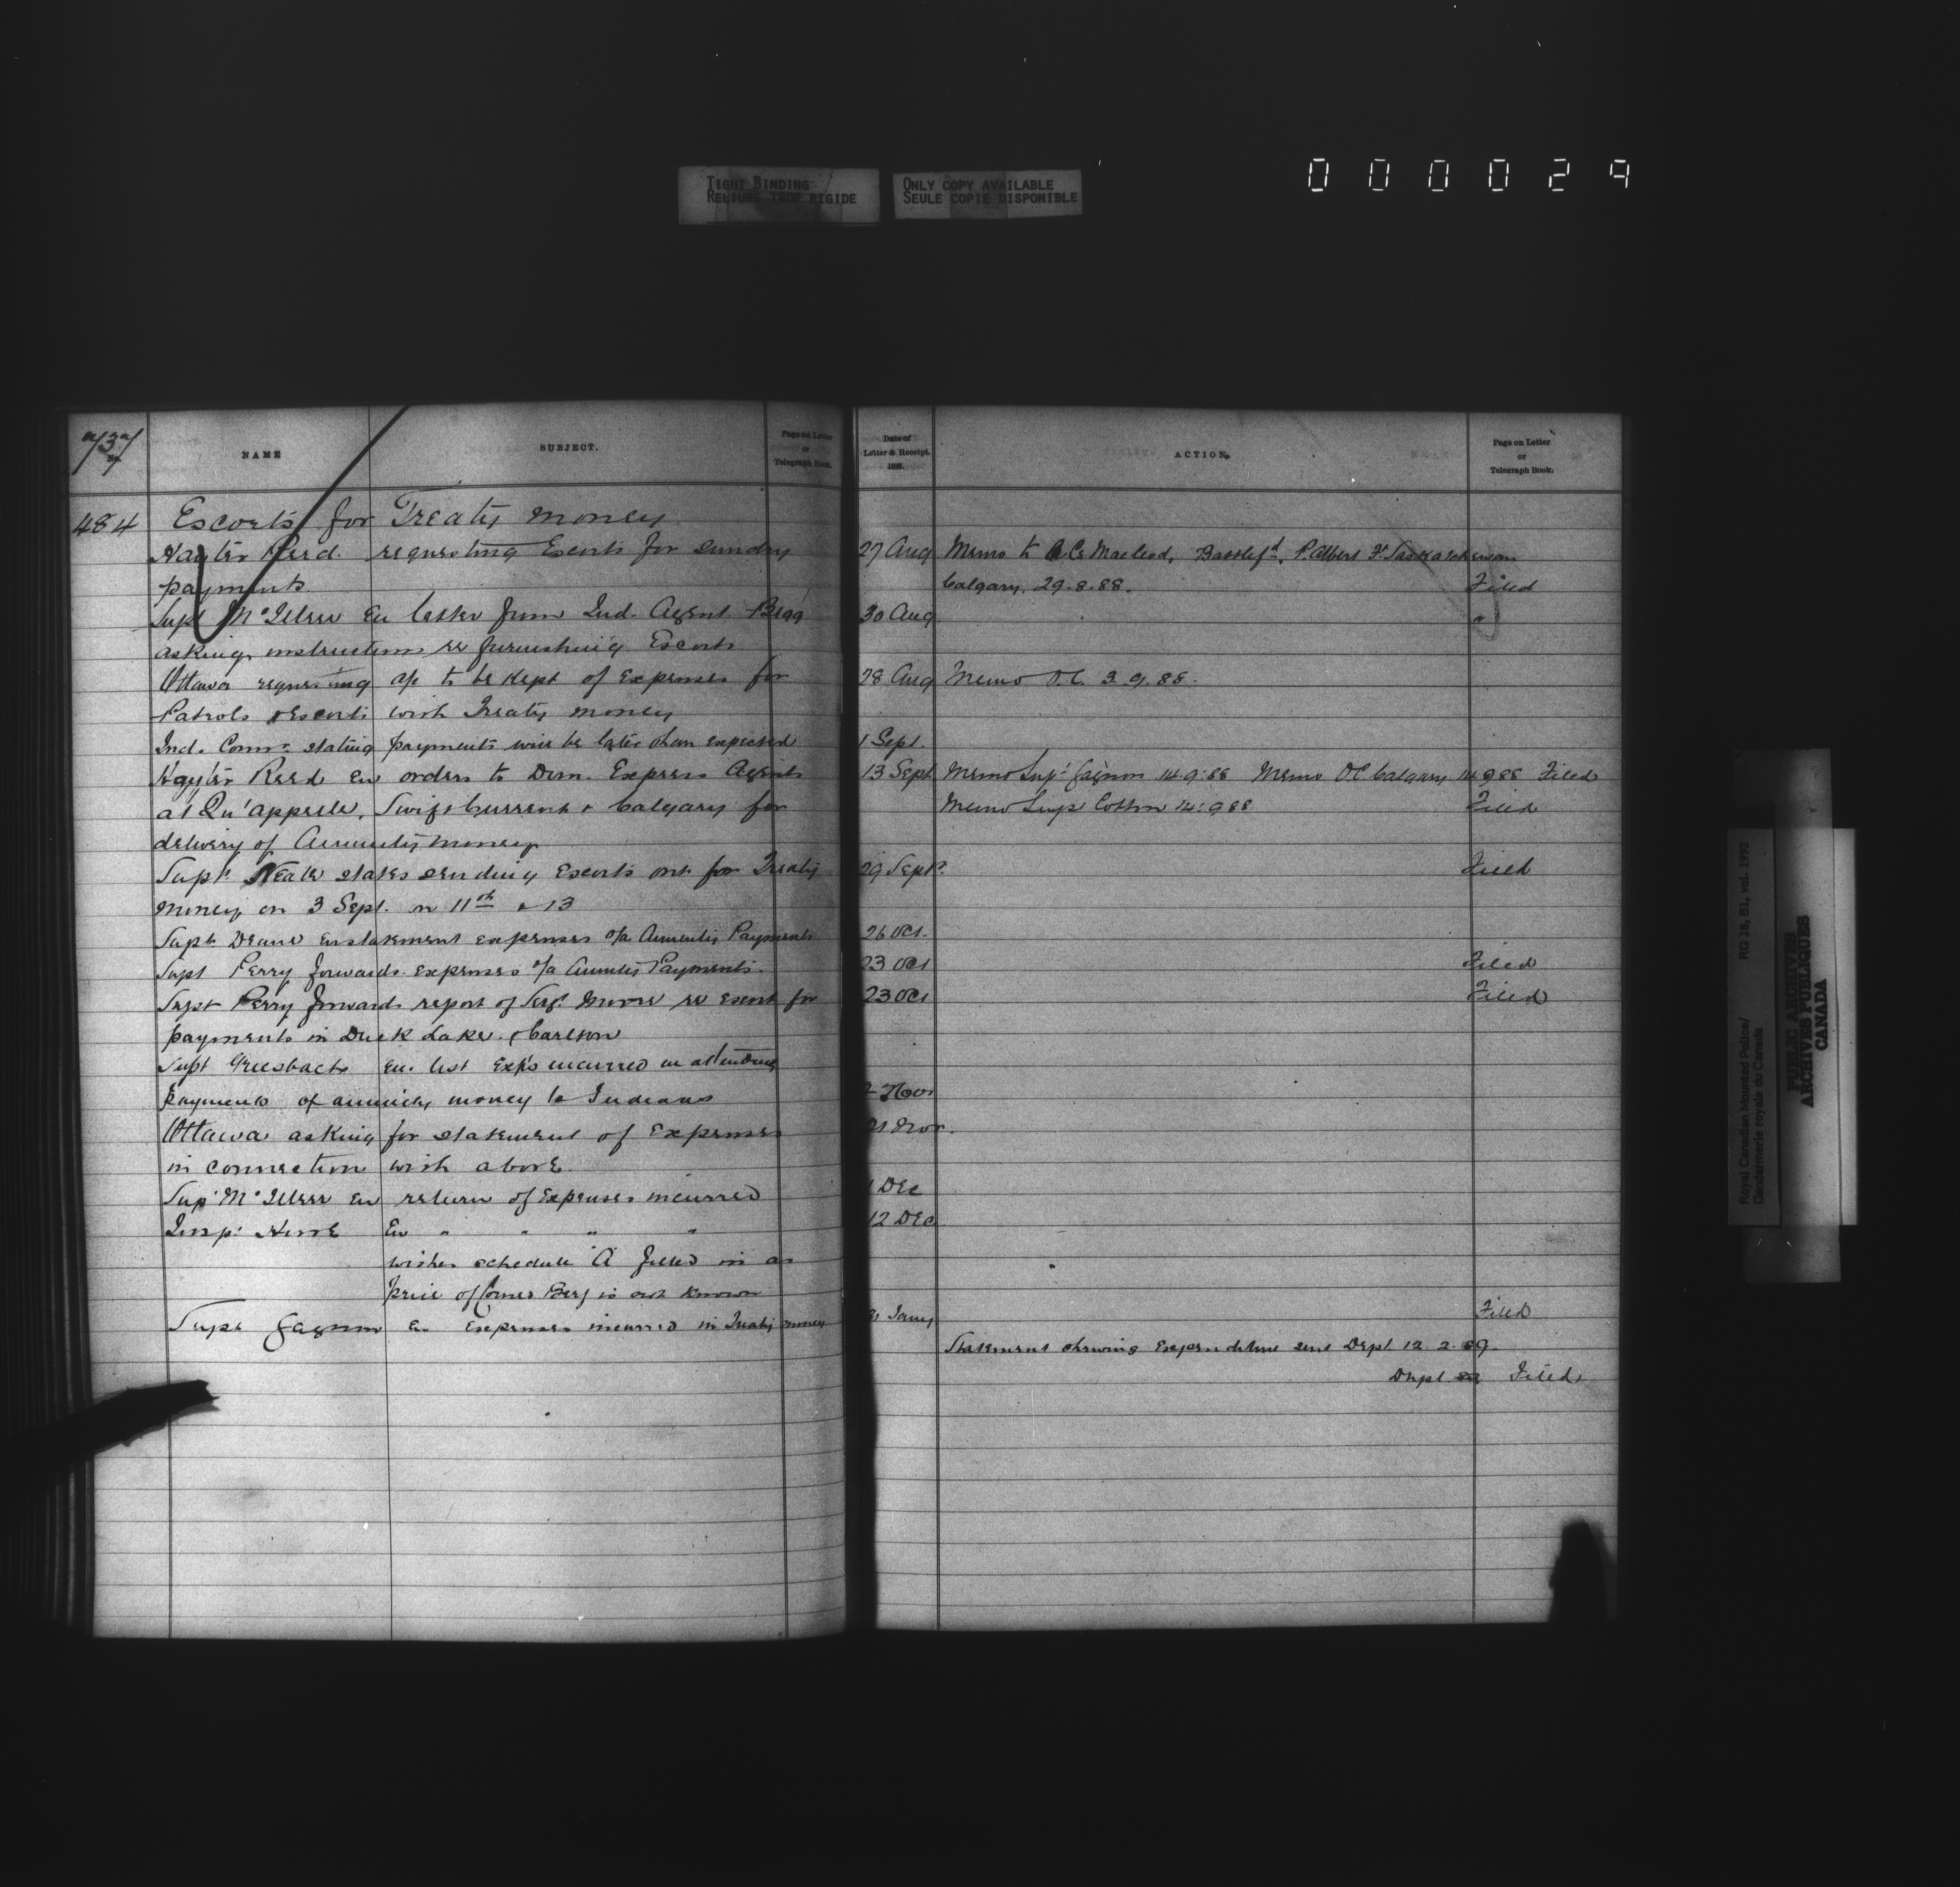 TIGHT BINDING
RELIURE TROP RIGIDE
ONLY COPY AVAILABLE
SEULE COPIE DISPONIBLE
000029
737
No.
NAME
SUBJECT.
Page on Letter
or
Telegraph Book.
484 Escorts for Treaty money
Hayter Reed. requesting Escorts for sundry
payments
Supt McIllree En letter from Ind. Agent Begg
asking instructions re furnishing Escorts
Ottawa requesting a/c to be kept of Expenses for
Patrols & Escorts with Treaty money
Ind. Commr. stating payments will be later than expected
Hayter Reed En orders to Dom. Express Agents
at Qu'appelle, Swift Current & Calgary for
delivery of Annuity money
Supt. Neale states sending Escorts out for Treaty
money on 3 Sept. on 11th & 13
Supt Deane En statement expenses o/a Annuity Payments
Supt Perry forwards expenses o/a Annuity Payments.
Supt Perry forwards report of Sergt. Moore re Escort for
payments in Duck Lake & Carlton
Supt Griesbach En. list Exp's incurred in attending
payments of annuity money to Indians
Ottawa asking for statement of Expenses
in connection with above.
Supt McIllree En return of Expenses incurred
Insp: Howe En " " " "
wishes schedule "A" filled in as
price of Corned Beef is not known
Supt Gagnon En Expenses incurred in Treaty money
Date of
Letter & Receipt.
1888.
ACTION.
Page on Letter
or
Telegraph Book.
27 Aug Memo to O.Cs Macleod, Battlefd, P. Albert Ft Saskatchewan
Calgary. 29.8.88. Filed
30 Aug "
28 Aug Memo O.C. 3.9.88.
1 Sept.
13 Sept Memo Supt Gagnon 14.9.88 Memo OC Calgary 14.9.88 Filed
Memo Supt Cotton 14.9.88 Filed
29 Sept. Filed
26 Oct.
23 Oct Filed
23 Oct Filed
2 Nov
21 Nov.
1 Dec
12 Dec
Jany Filed
Statement shewing Expenditure sent Dept 12.2.89.
Filed
Royal Canadian Mounted Police/
Gendarmerie royale du Canada
RG 18, B1, vol. 1992
PUBLIC ARCHIVES
ARCHIVES PUBLIQUES
CANADA